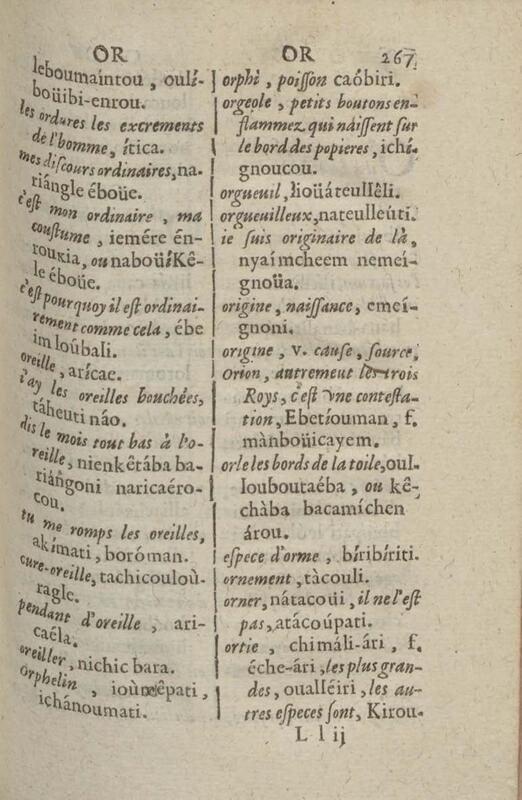 OR
leboumaíntou, oulí-
boüibi-enrou.
les ordures les excrements
de l'homme, ítica.
mes discours ordinaires, na-
riángle éboüe.
c'est mon ordinaire, ma
coustume, iemére én-
rouкia, ou naboüíKê-
le éboüe.
c'est pourquoy il est ordinai-
rement comme cela, ébe
im loúbali.
oreille, arícae.
i'ay les oreilles bouchées,
táheuti náo.
dis le mois tout bas à l'o-
reille, nienkêtába ba-
riáñgoni naricaéro-
cou.
tu me romps les oreilles,
akímati, boróman.
cure-oreille, tachicouloù-
ragle.
pendant d'oreille, ari-
caéla.
oreiller, nichic bara.
Orphelin,
ichánoumati.
OR 267
orphi, poisson caóbiri.
orgeole, petits boutons en-
flammez qui naissent sur
le bord des popieres, ichí-
gnoucou.
orgueuil, lioüáteullêli.
orgueuilleux, nateulleúti.
ie suis originaire de là,
nyaímcheem nemeí-
gnoüa.
origine, naissance, emeí-
gnoni.
origine, v. cause, source,
Orion, autrement les trois
Roys, c'est vne contesta-
tion, Ebetíouman, f.
mànboüicayem.
orle les bords de la toile, oul-
louboutaéba, ou kê-
chàba bacamíchen
árou.
espece d'orme, bíribíriti.
ornement, tàcouli.
orner, nátacoüi, il ne l'est
pas, atácoúpati.
ortie, chimáli-ári, f.
éche-ári, les plus gran-
des, oualléiri, les au-
tres especes sont, Kirou-
L l ij